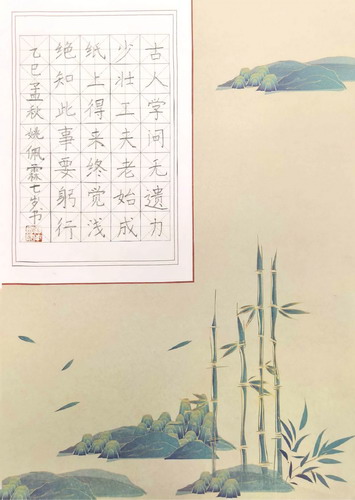 古人学问无遗力
少壮工夫老始成
纸上得来终觉浅
绝知此事要躬行
乙巳孟秋姚佩霖七岁书